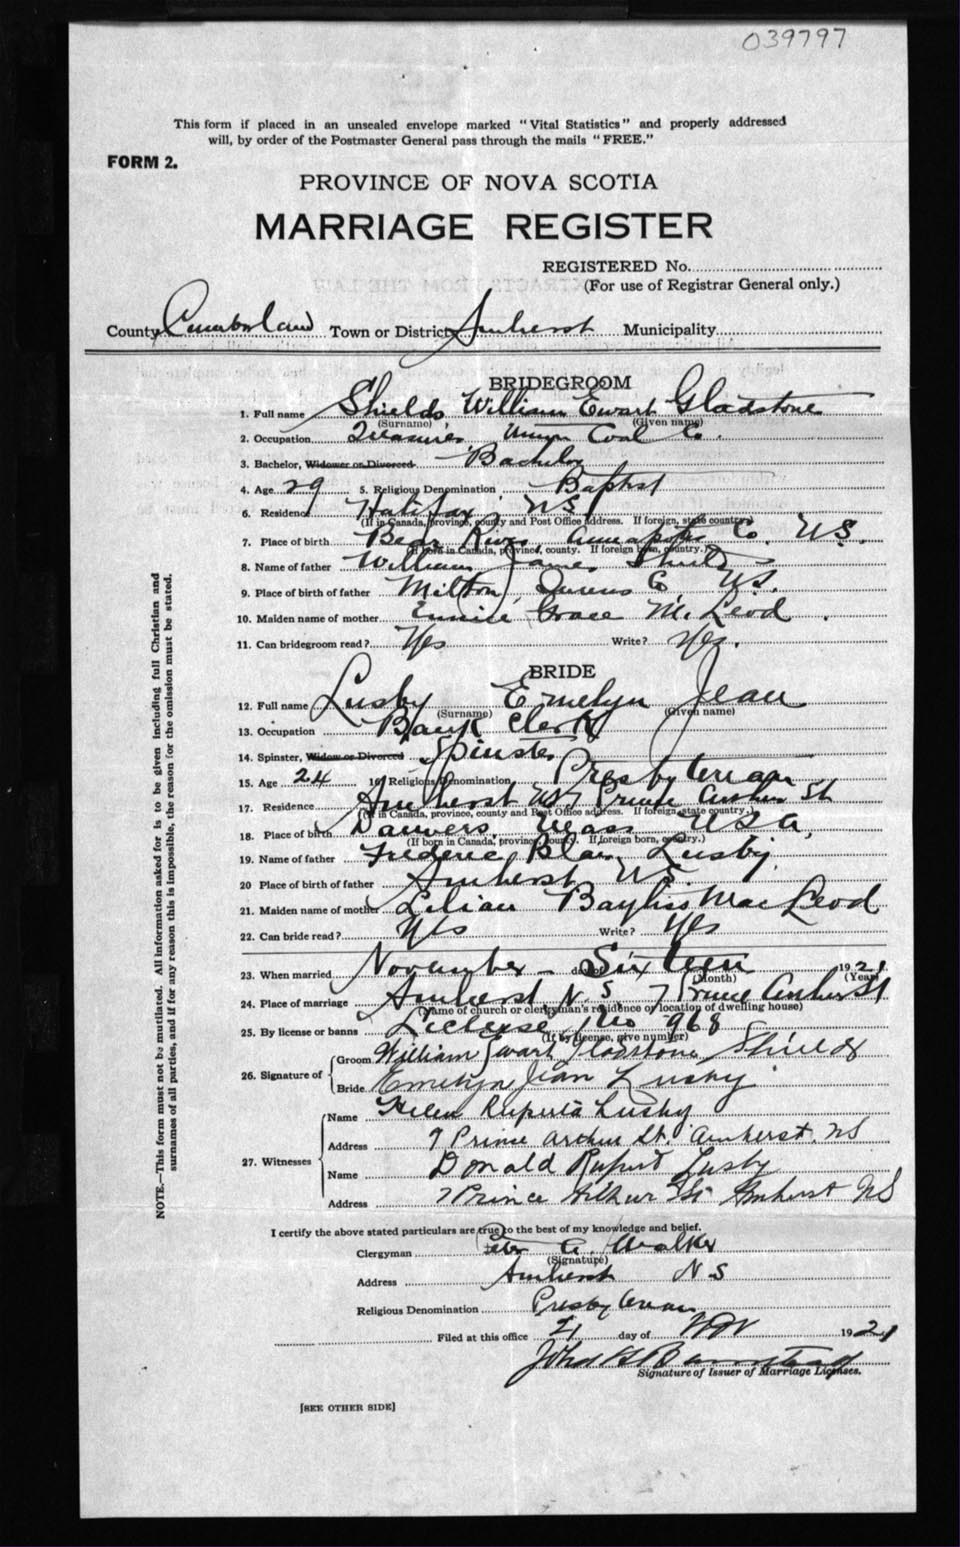 039797
This form if placed in an unsealed envelope marked "Vital Statistics" and properly addressed
will, by order of the Postmaster General pass through the mails "FREE."
FORM 2.
PROVINCE OF NOVA SCOTIA
MARRIAGE REGISTER
REGISTERED No.
(For use of Registrar General only.)
County Cumberland Town or District Amherst Municipality
BRIDEGROOM
1. Full name Shields William Ewart Gladstone
(Surname) (Given name)
2. Occupation Treasurer Coal Co.
3. Bachelor, Widower or Divorced Bachelor
4. Age 29 5. Religious Denomination Baptist
6. Residence Halifax NS
(If in Canada, province, county and Post Office address. If foreign, state country)
7. Place of birth Bear River Annapolis Co. N.S.
(If born in Canada, province, county. If foreign born, country.)
8. Name of father William James Shields
9. Place of birth of father Milton, Queens Co N.S.
10. Maiden name of mother Eunice Grace McLeod
11. Can bridegroom read? Yes Write? Yes.
BRIDE
12. Full name Lusby Emelyn Jean
(Surname) (Given name)
13. Occupation Bank Clerk
14. Spinster, Widow or Divorced Spinster
15. Age 24 16 Religious Denomination Presbyterian
17. Residence Amherst NS 7 Prince Arthur St
(If in Canada, province, county and Post Office address. If foreign, state country.)
18. Place of birth Danvers, Mass USA.
(If born in Canada, province, county. If foreign born, country.)
19. Name of father Frederic Blair Lusby
20 Place of birth of father Amherst NS
21. Maiden name of mother Lilian Bayliss MacLeod
22. Can bride read? Yes Write? Yes
23. When married November – day of Sixteen 1921
(Month) (Year)
24. Place of marriage Amherst N.S 7 Prince Arthur St
(Name of church or clergyman's residence or location of dwelling house)
25. By license or banns License No 968
(If by license, give number)
26. Signature of Groom William Ewart Gladstone Shields
Bride Emelyn Jean Lusby
27. Witnesses Name Helen Ruperta Lusby
Address 7 Prince Arthur St. Amherst. NS
Name Donald Rupert Lusby
Address 7 Prince Arthur St Amherst NS
I certify the above stated particulars are true to the best of my knowledge and belief.
Clergyman Walker
(Signature)
Address Amherst N S
Religious Denomination Presbyterian
Filed at this office 21 day of Nov 1921
John
Signature of Issuer of Marriage Licenses.
[SEE OTHER SIDE]
NOTE.—This form must not be mutilated. All information asked for is to be given including full Christian and
surnames of all parties, and if for any reason this is impossible, the reason for the omission must be stated.